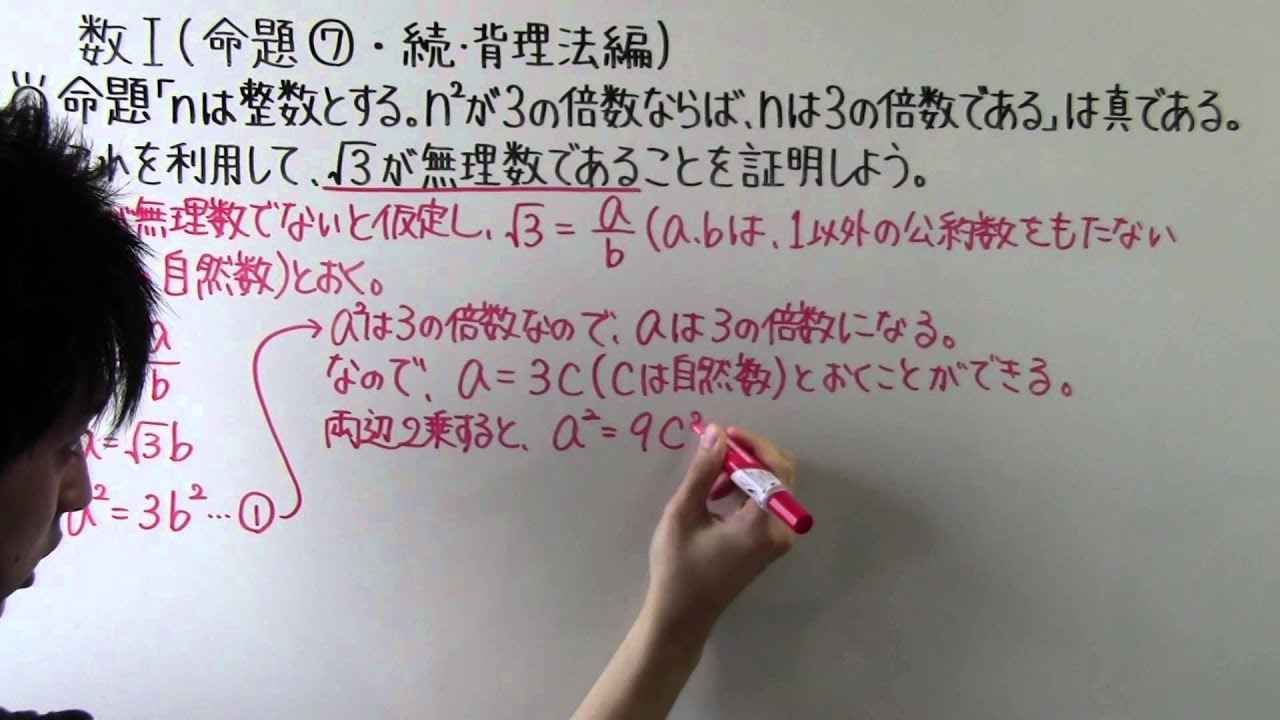 数Ⅰ(命題⑦・続・背理法編)
命題「nは整数とする。n²が3の倍数ならば、nは3の倍数である」は真である。
れを利用して、√3が無理数であることを証明しよう。
無理数でないと仮定し、√3 = a/b (a.bは、1以外の公約数をもたない
自然数)とおく。
a/b
a = √3b
a² = 3b² … ①
a²は3の倍数なので、aは3の倍数になる。
なので、a = 3c (cは自然数)とおくことができる。
両辺2乗すると、a² = 9c²